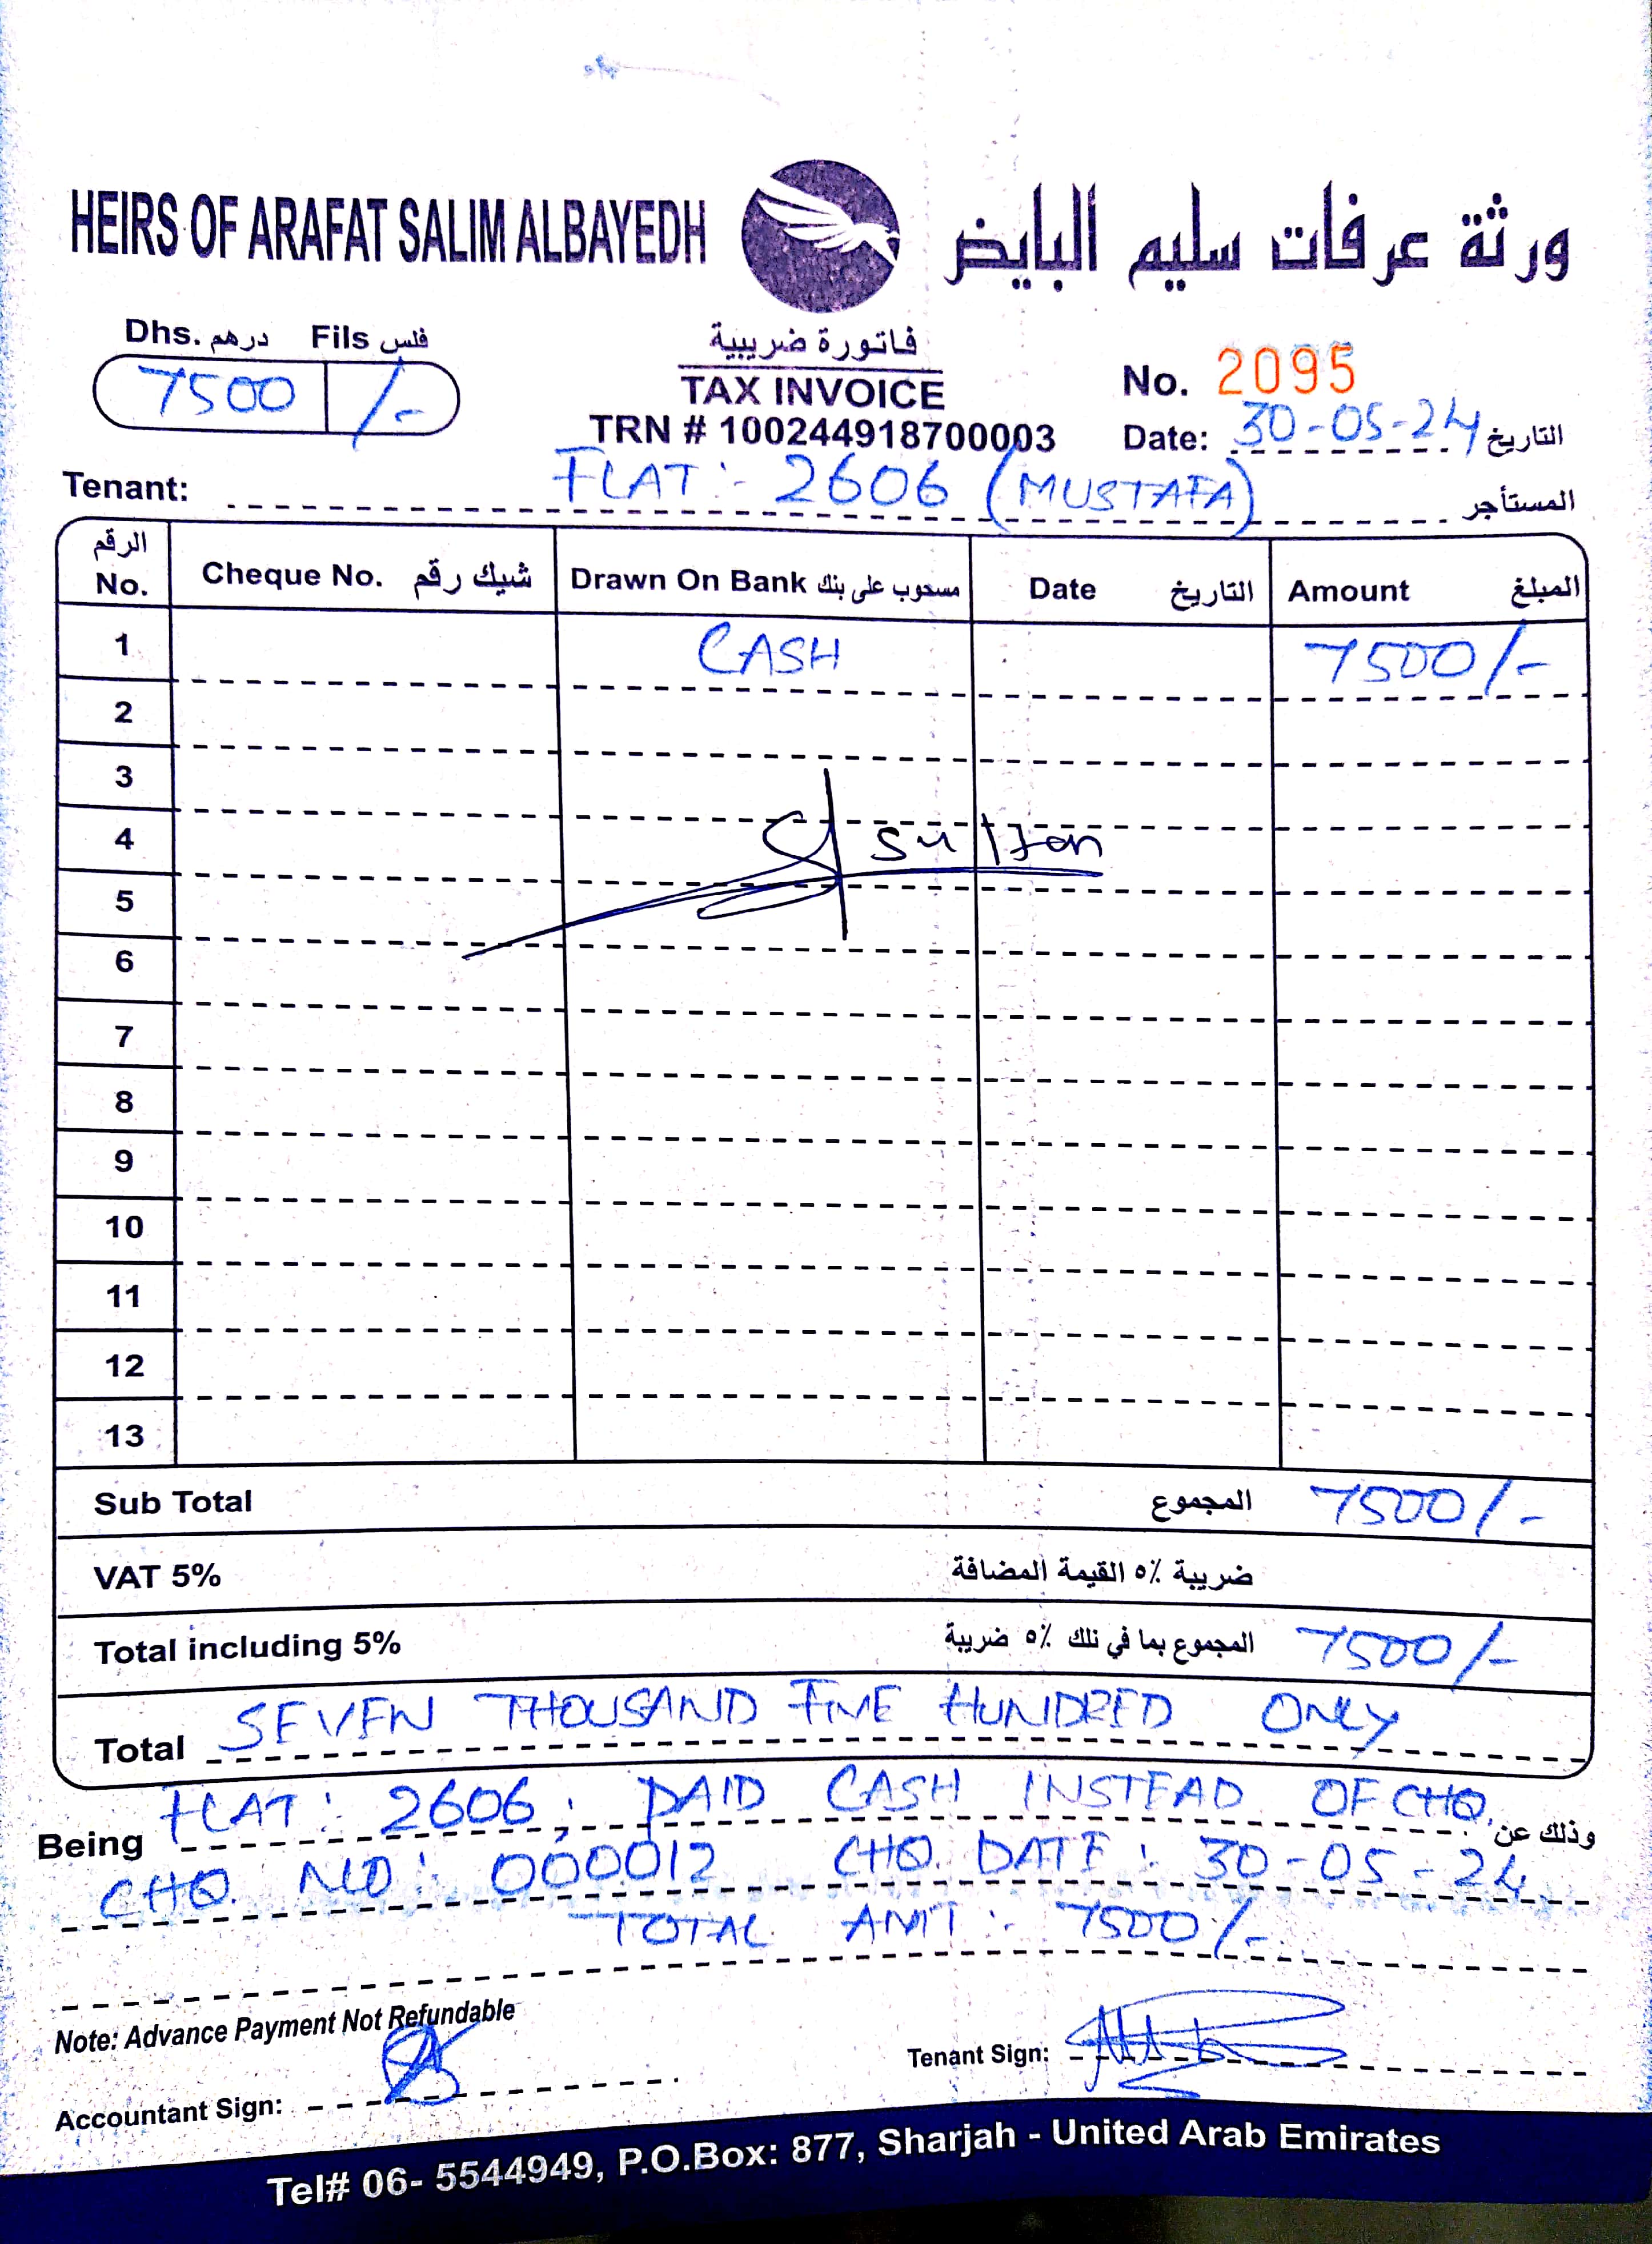 HEIRS OF ARAFAT SALIM ALBAYEDH ورثة عرفات سليم البايض
Dhs. درهم Fils فلس
7500 /-
فاتورة ضريبية
TAX INVOICE
TRN # 100244918700003
No. 2095
Date: 30-05-24 التاريخ
Tenant: FLAT:- 2606 (MUSTAFA) المستأجر
الرقم No. Cheque No. شيك رقم Drawn On Bank مسحوب على بنك Date التاريخ Amount المبلغ
1 CASH 7500/-
2
3
4
5
6
7
8
9
10
11
12
13
Sub Total المجموع 7500/-
VAT 5% ضريبة ٥٪ القيمة المضافة
Total including 5% المجموع بما في تلك ٥٪ ضريبة 7500/-
Total SEVEN THOUSAND FIVE HUNDRED ONLY
Being FLAT: 2606; PAID CASH INSTEAD OF CHQ. وذلك عن
CHQ. NO: 000012 CHQ. DATE: 30-05-24
TOTAL AMT:- 7500/-
Note: Advance Payment Not Refundable
Accountant Sign:
Tenant Sign:
Tel# 06- 5544949, P.O.Box: 877, Sharjah - United Arab Emirates